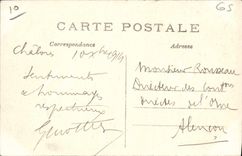 10
65
CARTE POSTALE
Correspondance
Adresse
Châlons
Sentiments
& hommages
respectueux
Monsieur Rousseau
Directeur des Cont^ons
Directes de l'Orne
Alençon